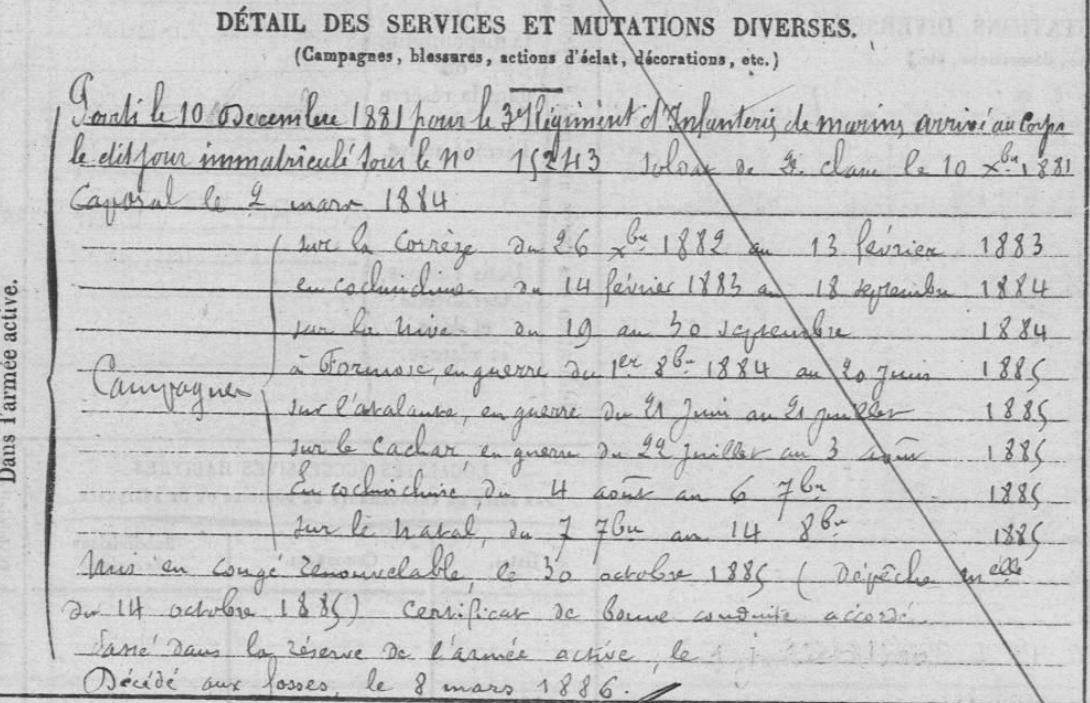 DÉTAIL DES SERVICES ET MUTATIONS DIVERSES.
(Campagnes, blessures, actions d'éclat, décorations, etc.)
Dans l'armée active.
Parti le 10 Décembre 1881 pour le 3e Régiment d'Infanterie de marine arrivé au Corps
le dit jour immatriculé sous le No 15243 Soldat de 2e classe le 10 Xbre 1881
Caporal le 2 mars 1884
Campagnes
sur la Corrèze du 26 Xbre 1882 au 13 février 1883
en cochinchine du 14 février 1883 au 18 septembre 1884
sur la Nive du 19 au 30 septembre 1884
à Formose, en guerre du 1er 8bre 1884 au 20 Juin 1885
sur l'atalante, en guerre du 21 Juin au 21 juillet 1885
sur le Cachar en guerre du 22 juillet au 3 août 1885
En cochinchine, du 4 août au 6 7bre 1885
sur le Natal, du 7 7bre au 14 8bre 1885
Mis en congé renouvelable, le 30 octobre 1885 (Dépêche melle
du 14 octobre 1885) Certificat de bonne conduite accordé.
Passé dans la réserve de l'armée active, le
Décédé aux fosses, le 8 mars 1886.